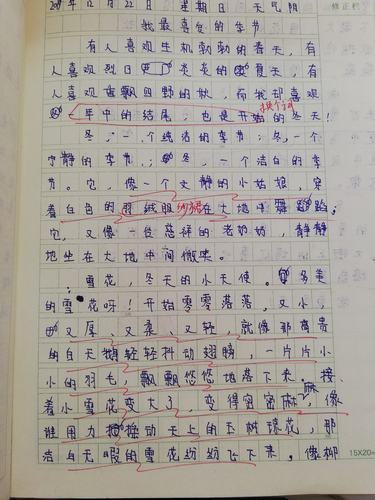 12月22日 星期日 天气阴
我最喜爱的季节
有人喜观生机勃勃的春天，有
人喜观烈日炎炎的夏天，有
人喜观飘四野的秋，而我却喜观
年中的结尾，也是开始的冬天！
换个词
冬，一个纯洁的季节；冬，一个
宁静的季节；冬，一个洁白的季
节。它，像一个文静的小姑娘，穿
着白色的羽绒服 在大地中舞蹈；
它，又像一位慈祥的老奶奶，静静
地坐在大地中间微笑。
雪花，冬天的小天使。多美
的雪花呀！开始零零落落，又小，
又厚、又柔、又轻，就像那高贵
的白天鹅轻轻抖动翅膀，一片片小
小的羽毛，飘飘悠悠地落下来。接
着小雪花变大了，变得密密麻麻，像
谁用力摇动天上的玉树琼花，那
洁白无暇的雪花纷纷飞下来。像柳
15×20=
修正栏